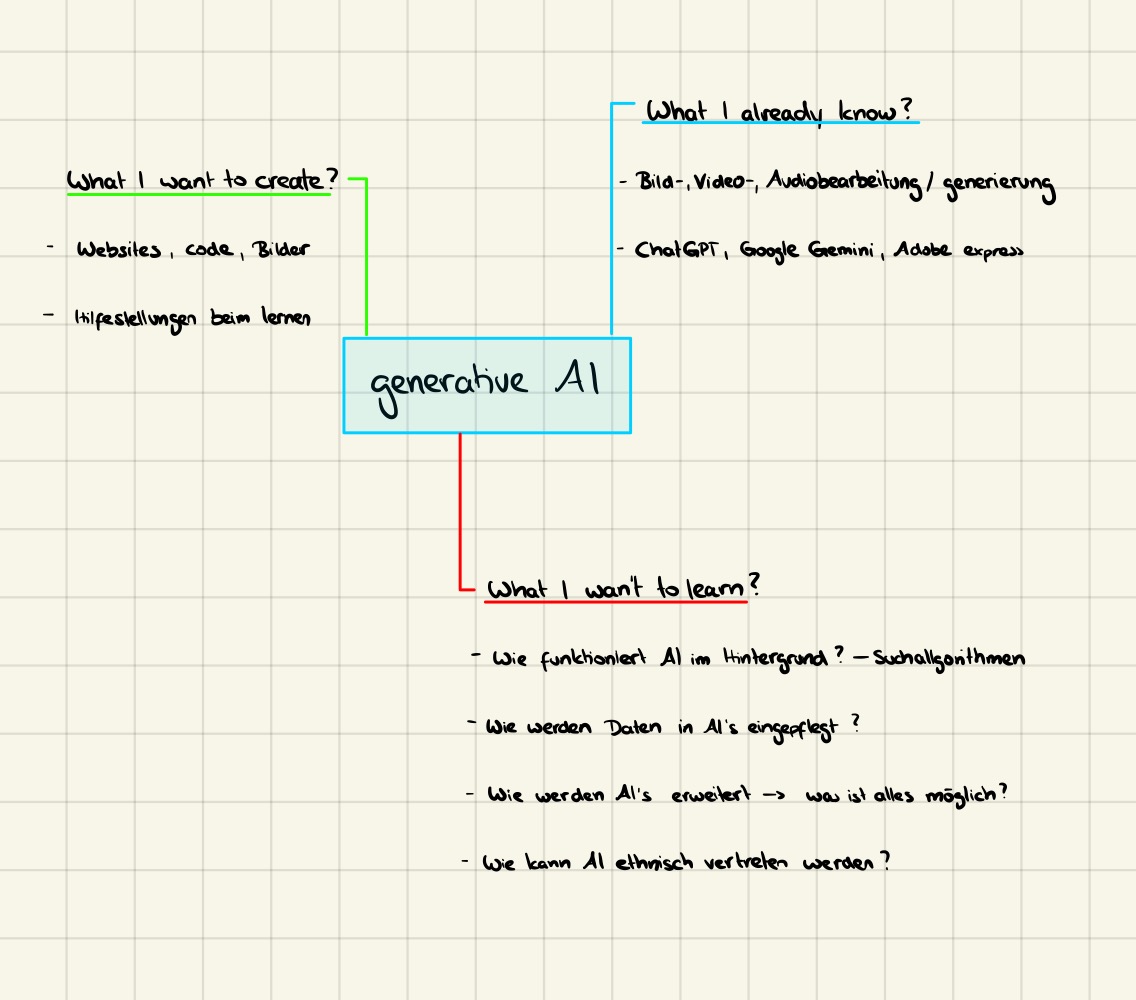 What I already know?
- Bild-, Video-, Audiobearbeitung / generierung
- ChatGPT, Google Gemini, Adobe express
What I want to create?
- Websites, code, Bilder
- Hilfestellungen beim lernen
generative AI
What I wan't to learn?
- Wie funktioniert AI im Hintergrund? – Suchallgorithmen
- Wie werden Daten in AI's eingepflegt ?
- Wie werden AI's erweitert -> was ist alles möglich?
- Wie kann AI ethnisch vertreten werden?